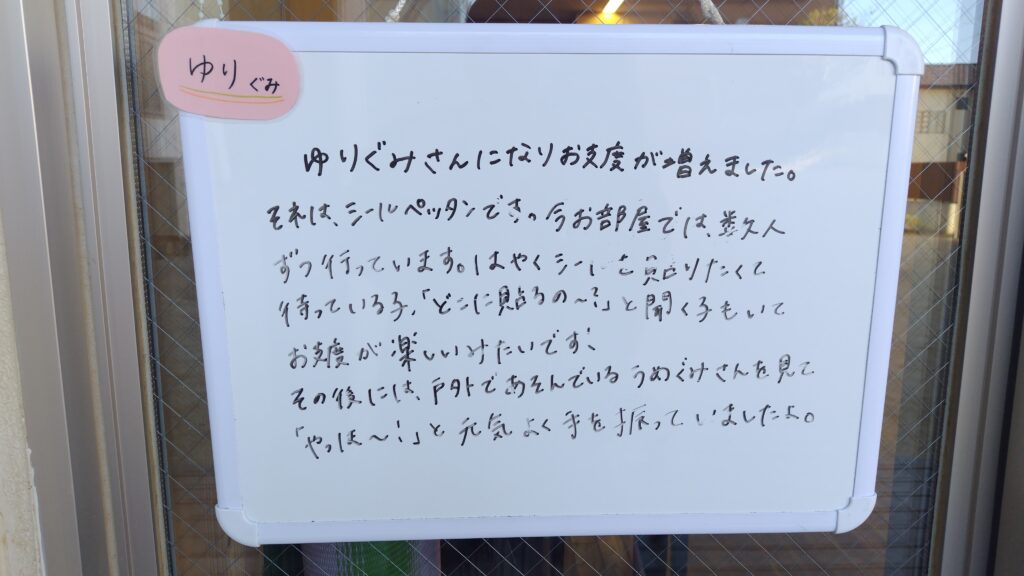 ゆりぐみ
ゆりぐみさんになりお支度が増えました。
それは、シールペッタンです。今お部屋では、数人
ずつ行っています。はやくシールを貼りたくて
待っている子、「どこに貼るの〜?」と聞く子もいて
お支度が楽しいみたいです!
その後には、戸外であそんでいるうめぐみさんを見て
「やっほ〜!」と元気よく手を振っていましたよ。